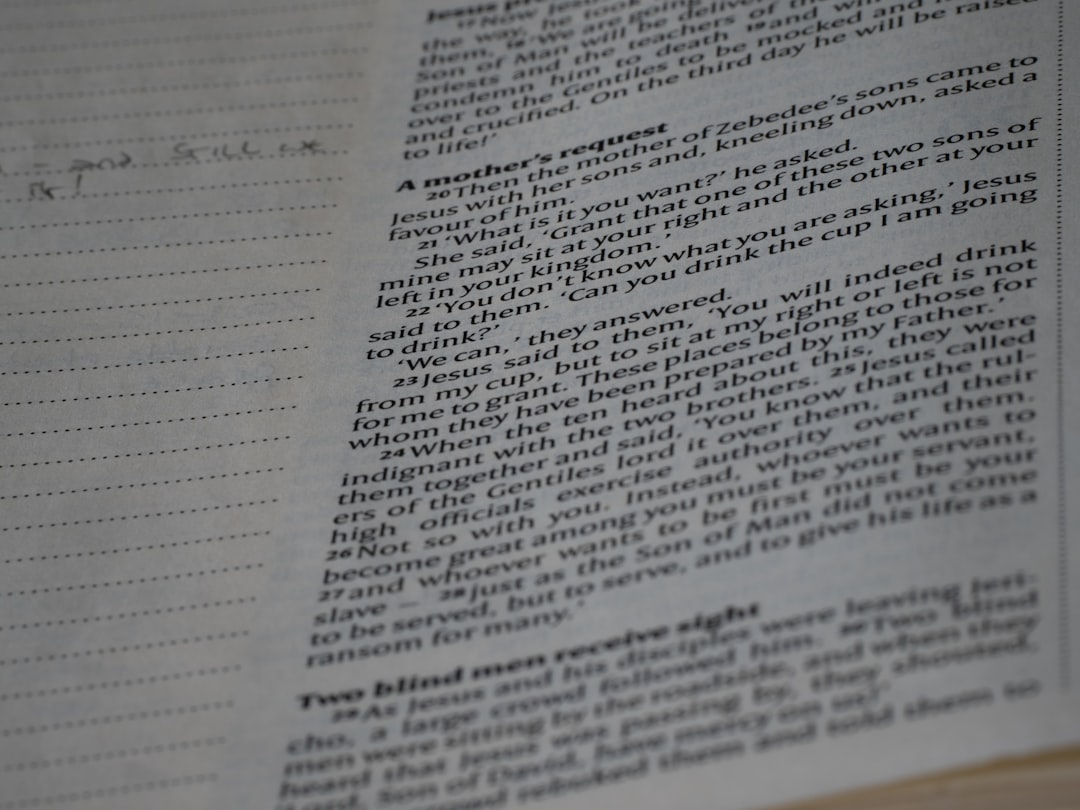 STILL
Jesus
17 Now
the way, he took
them, 18 'We are going
Son of Man will be deliver
priests and the teachers of the
condemn him to death 19 and
over to the Gentiles to be mocked and
and crucified. On the third day he will be raised
to life!'
A mother's request
20 Then the mother of Zebedee's sons came to
Jesus with her sons and, kneeling down, asked a
favour of him.
21 'What is it you want?' he asked.
She said, 'Grant that one of these two sons of
mine may sit at your right and the other at your
left in your kingdom.'
22 'You don't know what you are asking,' Jesus
said to them. 'Can you drink the cup I am going
to drink?'
'We can,' they answered.
23 Jesus said to them, 'You will indeed drink
from my cup, but to sit at my right or left is not
for me to grant. These places belong to those for
whom they have been prepared by my Father.'
24 When the ten heard about this, they were
indignant with the two brothers. 25 Jesus called
them together and said, 'You know that the rul-
ers of the Gentiles lord it over them, and their
high officials exercise authority over them.
26 Not so with you. Instead, whoever wants to
become great among you must be your servant,
27 and whoever wants to be first must be your
slave – 28 just as the Son of Man did not come
to be served, but to serve, and to give his life as a
ransom for many.'
Two blind men receive sight
29 As Jesus and his disciples were leaving Jeri-
cho, a large crowd followed him. 30 Two blind
men were sitting by the roadside, and when they
heard that Jesus was passing by, they shouted,
Lord, Son of David, have mercy on us!'
rebuked them and told them to